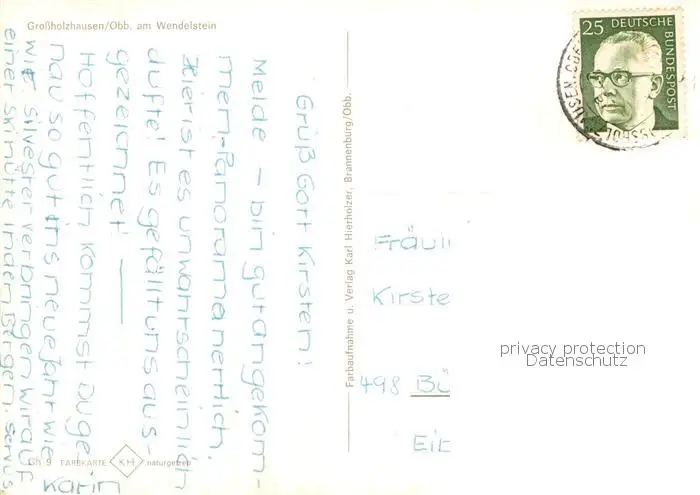 Großholzhausen/Obb. am Wendelstein
Grüß Gott Kirsten!
Melde – bin gut angekom-
men – Panorama herrlich.
Hier ist es unwahrscheinlich
dufte! Es gefällt uns aus-
gezeichnet!
Hoffentlich kommst Du ge-
nau so gut ins neue Jahr wie
wir. Silvester verbringen wir auf
einer Skihütte in den Bergen. Servus
Karin
Gh 9 FARBKARTE KH naturgetreu
Farbaufnahme u. Verlag Karl Hierholzer, Brannenburg/Obb.
25 DEUTSCHE
BUNDESPOST
Fräuli
Kirste
498 Bü
privacy protection
Datenschutz